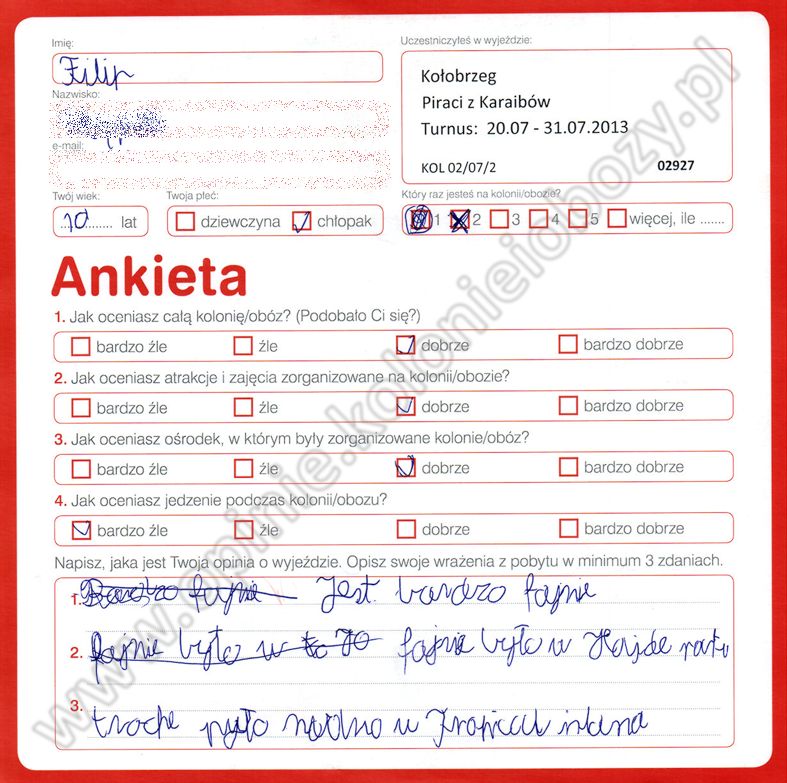 Imię:
Filip
Nazwisko:
e-mail:
Uczestniczyłeś w wyjeździe:
Kołobrzeg
Piraci z Karaibów
Turnus: 20.07 - 31.07.2013
KOL 02/07/2 02927
Twój wiek: Twoja płeć: Który raz jesteś na kolonii/obozie?
10 lat dziewczyna chłopak 1 2 3 4 5 więcej, ile .......
Ankieta
1. Jak oceniasz całą kolonię/obóz? (Podobało Ci się?)
bardzo źle źle dobrze bardzo dobrze
2. Jak oceniasz atrakcje i zajęcia zorganizowane na kolonii/obozie?
bardzo źle źle dobrze bardzo dobrze
3. Jak oceniasz ośrodek, w którym były zorganizowane kolonie/obóz?
bardzo źle źle dobrze bardzo dobrze
4. Jak oceniasz jedzenie podczas kolonii/obozu?
bardzo źle źle dobrze bardzo dobrze
Napisz, jaka jest Twoja opinia o wyjeździe. Opisz swoje wrażenia z pobytu w minimum 3 zdaniach.
1. Bardzo fajnie Jest bardzo fajnie
2. fajnie było w to fajnie było w
3. troche nudno w
www.opinie.kolonieiobozy.pl